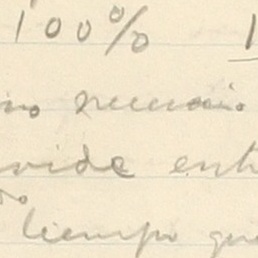 100%
necesario
vide ent
do
tiempo que